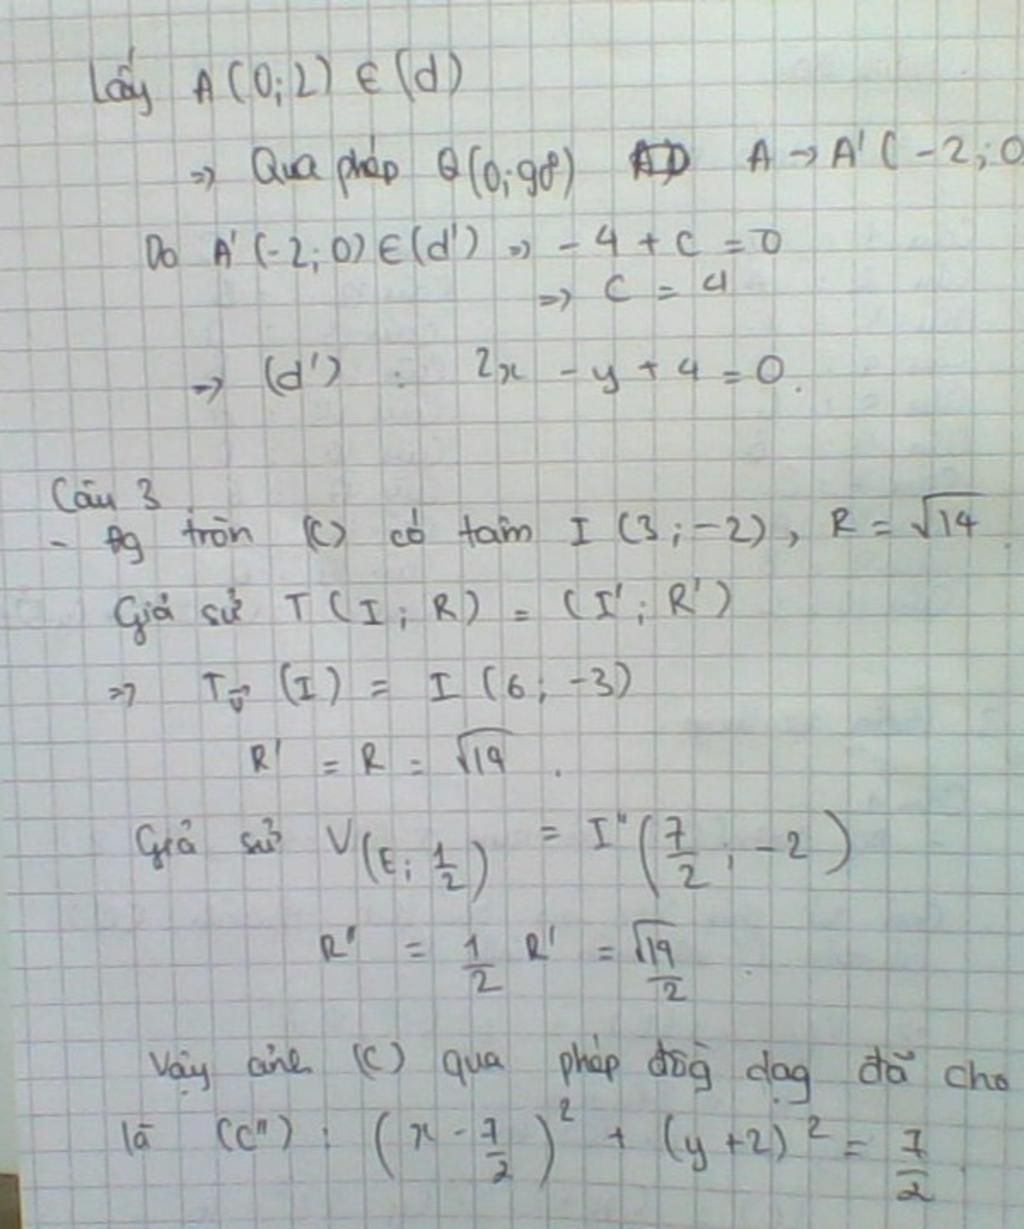 Lấy A(0;2) ∈ (d)
=> Qua phép Q(0;90°) A → A'(-2;0
Do A'(-2;0) ∈ (d') => -4 + C = 0
=> C = 4
=> (d') : 2x - y + 4 = 0.
Câu 3
- Đg tròn (C) có tâm I (3;-2), R = √14.
Giả sử T(I;R) = (I';R')
=> T_v→ (I) = I (6;-3)
R' = R = √14.
Giả sử V(E; 1/2) = I" (7/2; -2)
R" = 1/2 R' = √14/2.
Vậy ảnh (C) qua phép đồg dạg đã cho
là (C") : (x - 7/2)² + (y+2)² = 7/2.